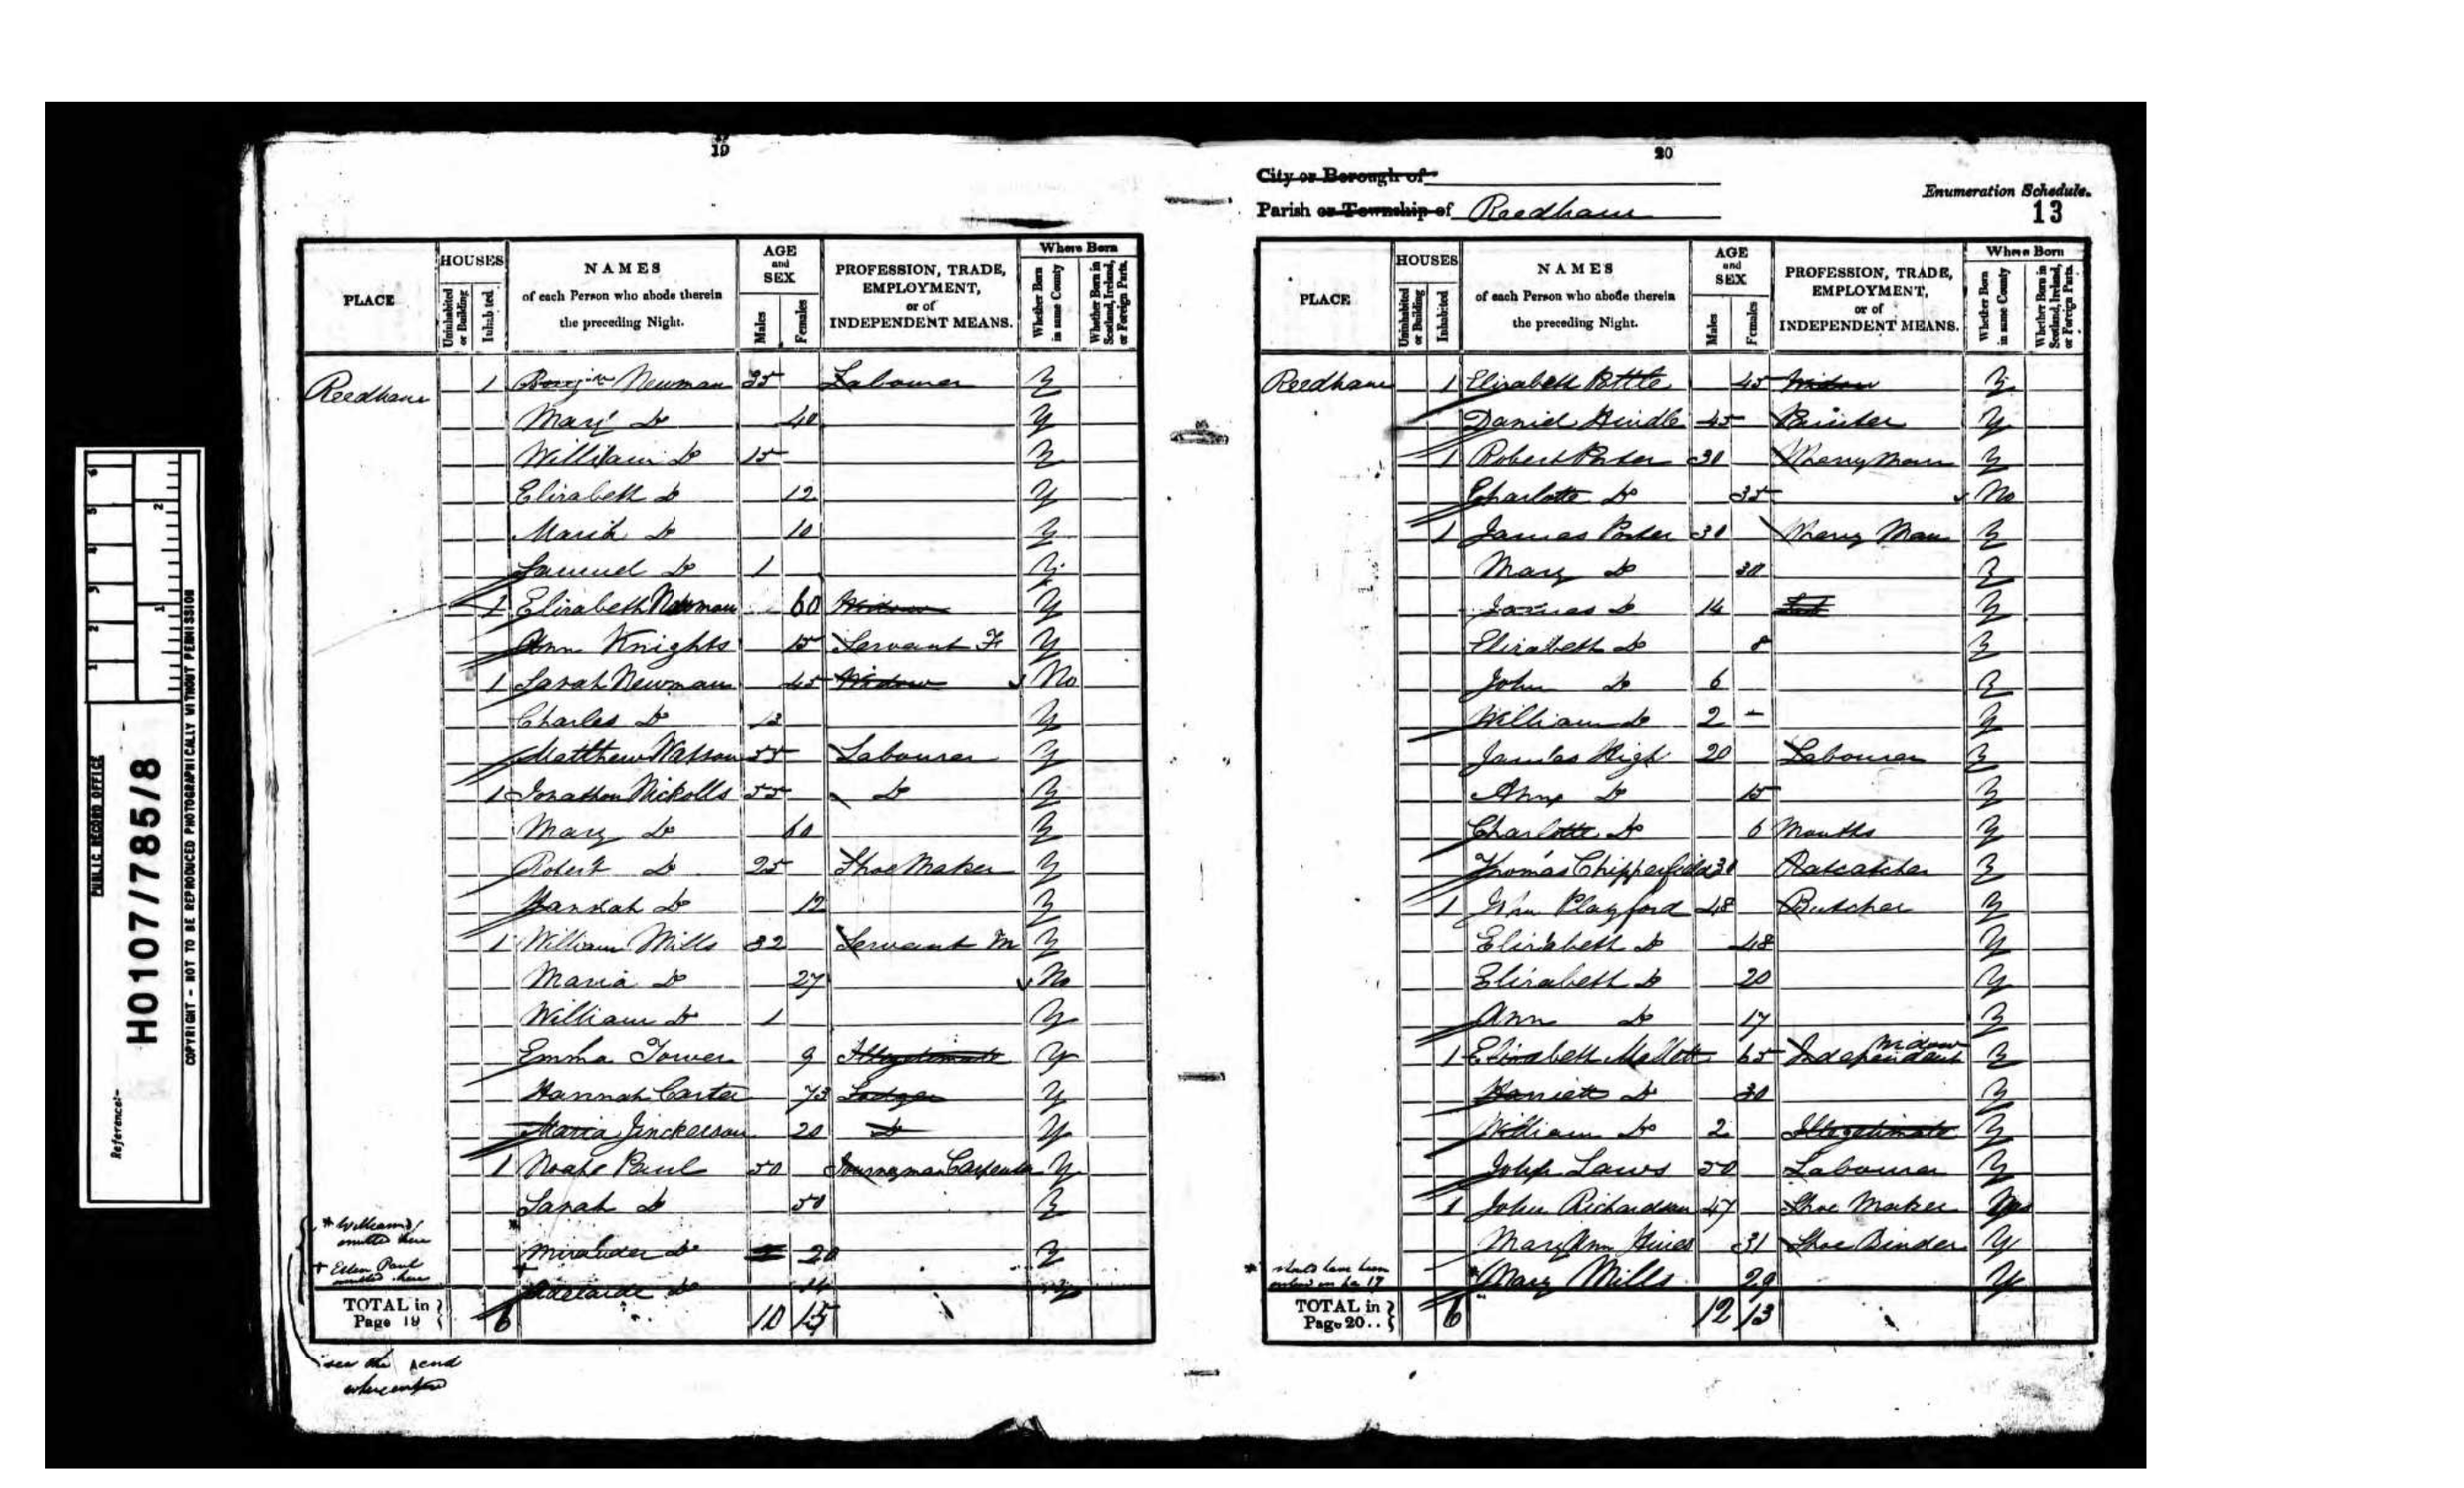 19
PLACE
HOUSES
Uninhabited or Building
Inhabited
NAMES
of each Person who abode therein
the preceding Night.
AGE
and
SEX
Males
Females
PROFESSION, TRADE,
EMPLOYMENT,
or of
INDEPENDENT MEANS.
Where Born
Whether Born in same County
Whether Born in Scotland, Ireland, or Foreign Parts.
Reedham 1 Benjn Newman 35 Labourer Y
Mary Do 40 Y
William Do 15 Y
Elizabeth Do 12 Y
Maria Do 10 Y
Samuel Do 1 Y
1 Elizabeth Newman 60 Widow Y
Ann Knights 15 Servant F Y
1 Sarah Newman 45 Widow No
Charles Do 13 Y
Matthew Watson 55 Labourer Y
1 Jonathon Nickolls 55 Do Y
Mary Do 60 Y
Robert Do 25 Shoe Maker Y
Hannah Do 12 Y
1 William Mills 32 Servant M Y
Maria Do 27 No
William Do 1 Y
Emma Tower 9 Illegetimate Y
Hannah Carter 73 Lodger Y
Maria Jinckerson 20 Do Y
1 Noahe Paul 50 Journeyman Carpenter Y
Sarah Do 50 Y
* William Do
omitted here
* Mirander Do 20 Y
+ Ellen Paul
omitted here
+ Adelaide Do 14 Y
TOTAL in
Page 19 6 10 15
see the
20
City or Borough of
Parish or Township of Reedham
Enumeration Schedule.
13
PLACE
HOUSES
Uninhabited or Building
Inhabited
NAMES
of each Person who abode therein
the preceding Night.
AGE
and
SEX
Males
Females
PROFESSION, TRADE,
EMPLOYMENT,
or of
INDEPENDENT MEANS.
Where Born
Whether Born in same County
Whether Born in Scotland, Ireland, or Foreign Parts.
Reedham 1 Elizabeth Pottle 45 Widow Y
Daniel Hindle 45 Painter Y
1 Robert Porter 30 Wherry Man Y
Charlotte Do 35 No
1 James Porter 30 Wherry Man Y
Mary Do 30 Y
James Do 14 Y
Elizabeth Do 8 Y
John Do 6 Y
William Do 2 - Y
James High 20 Labourer Y
Ann Do 15 Y
Charlotte Do 6 Months Y
Thomas Chipperfield 30 Ratcatcher Y
1 John Playford 48 Butcher Y
Elizabeth Do 48 Y
Elizabeth Do 20 Y
Ann Do 17 Y
1 Elizabeth Mallett 65 Independent Widow Y
Harriett Do 30 Y
William Do 2 Illegetimate Y
Joseph Laws 50 Labourer Y
1 John Richardson 47 Shoe Maker
Mary Ann Hines 31 Shoe Binder Y
* should have been
* Mary Mills 29 Y
TOTAL in
Page 20.. 6 12 13
PUBLIC RECORD OFFICE
Reference:-
HO107/785/8
COPYRIGHT - NOT TO BE REPRODUCED PHOTOGRAPHICALLY WITHOUT PERMISSION
1 2 3 4 5 6
1 2